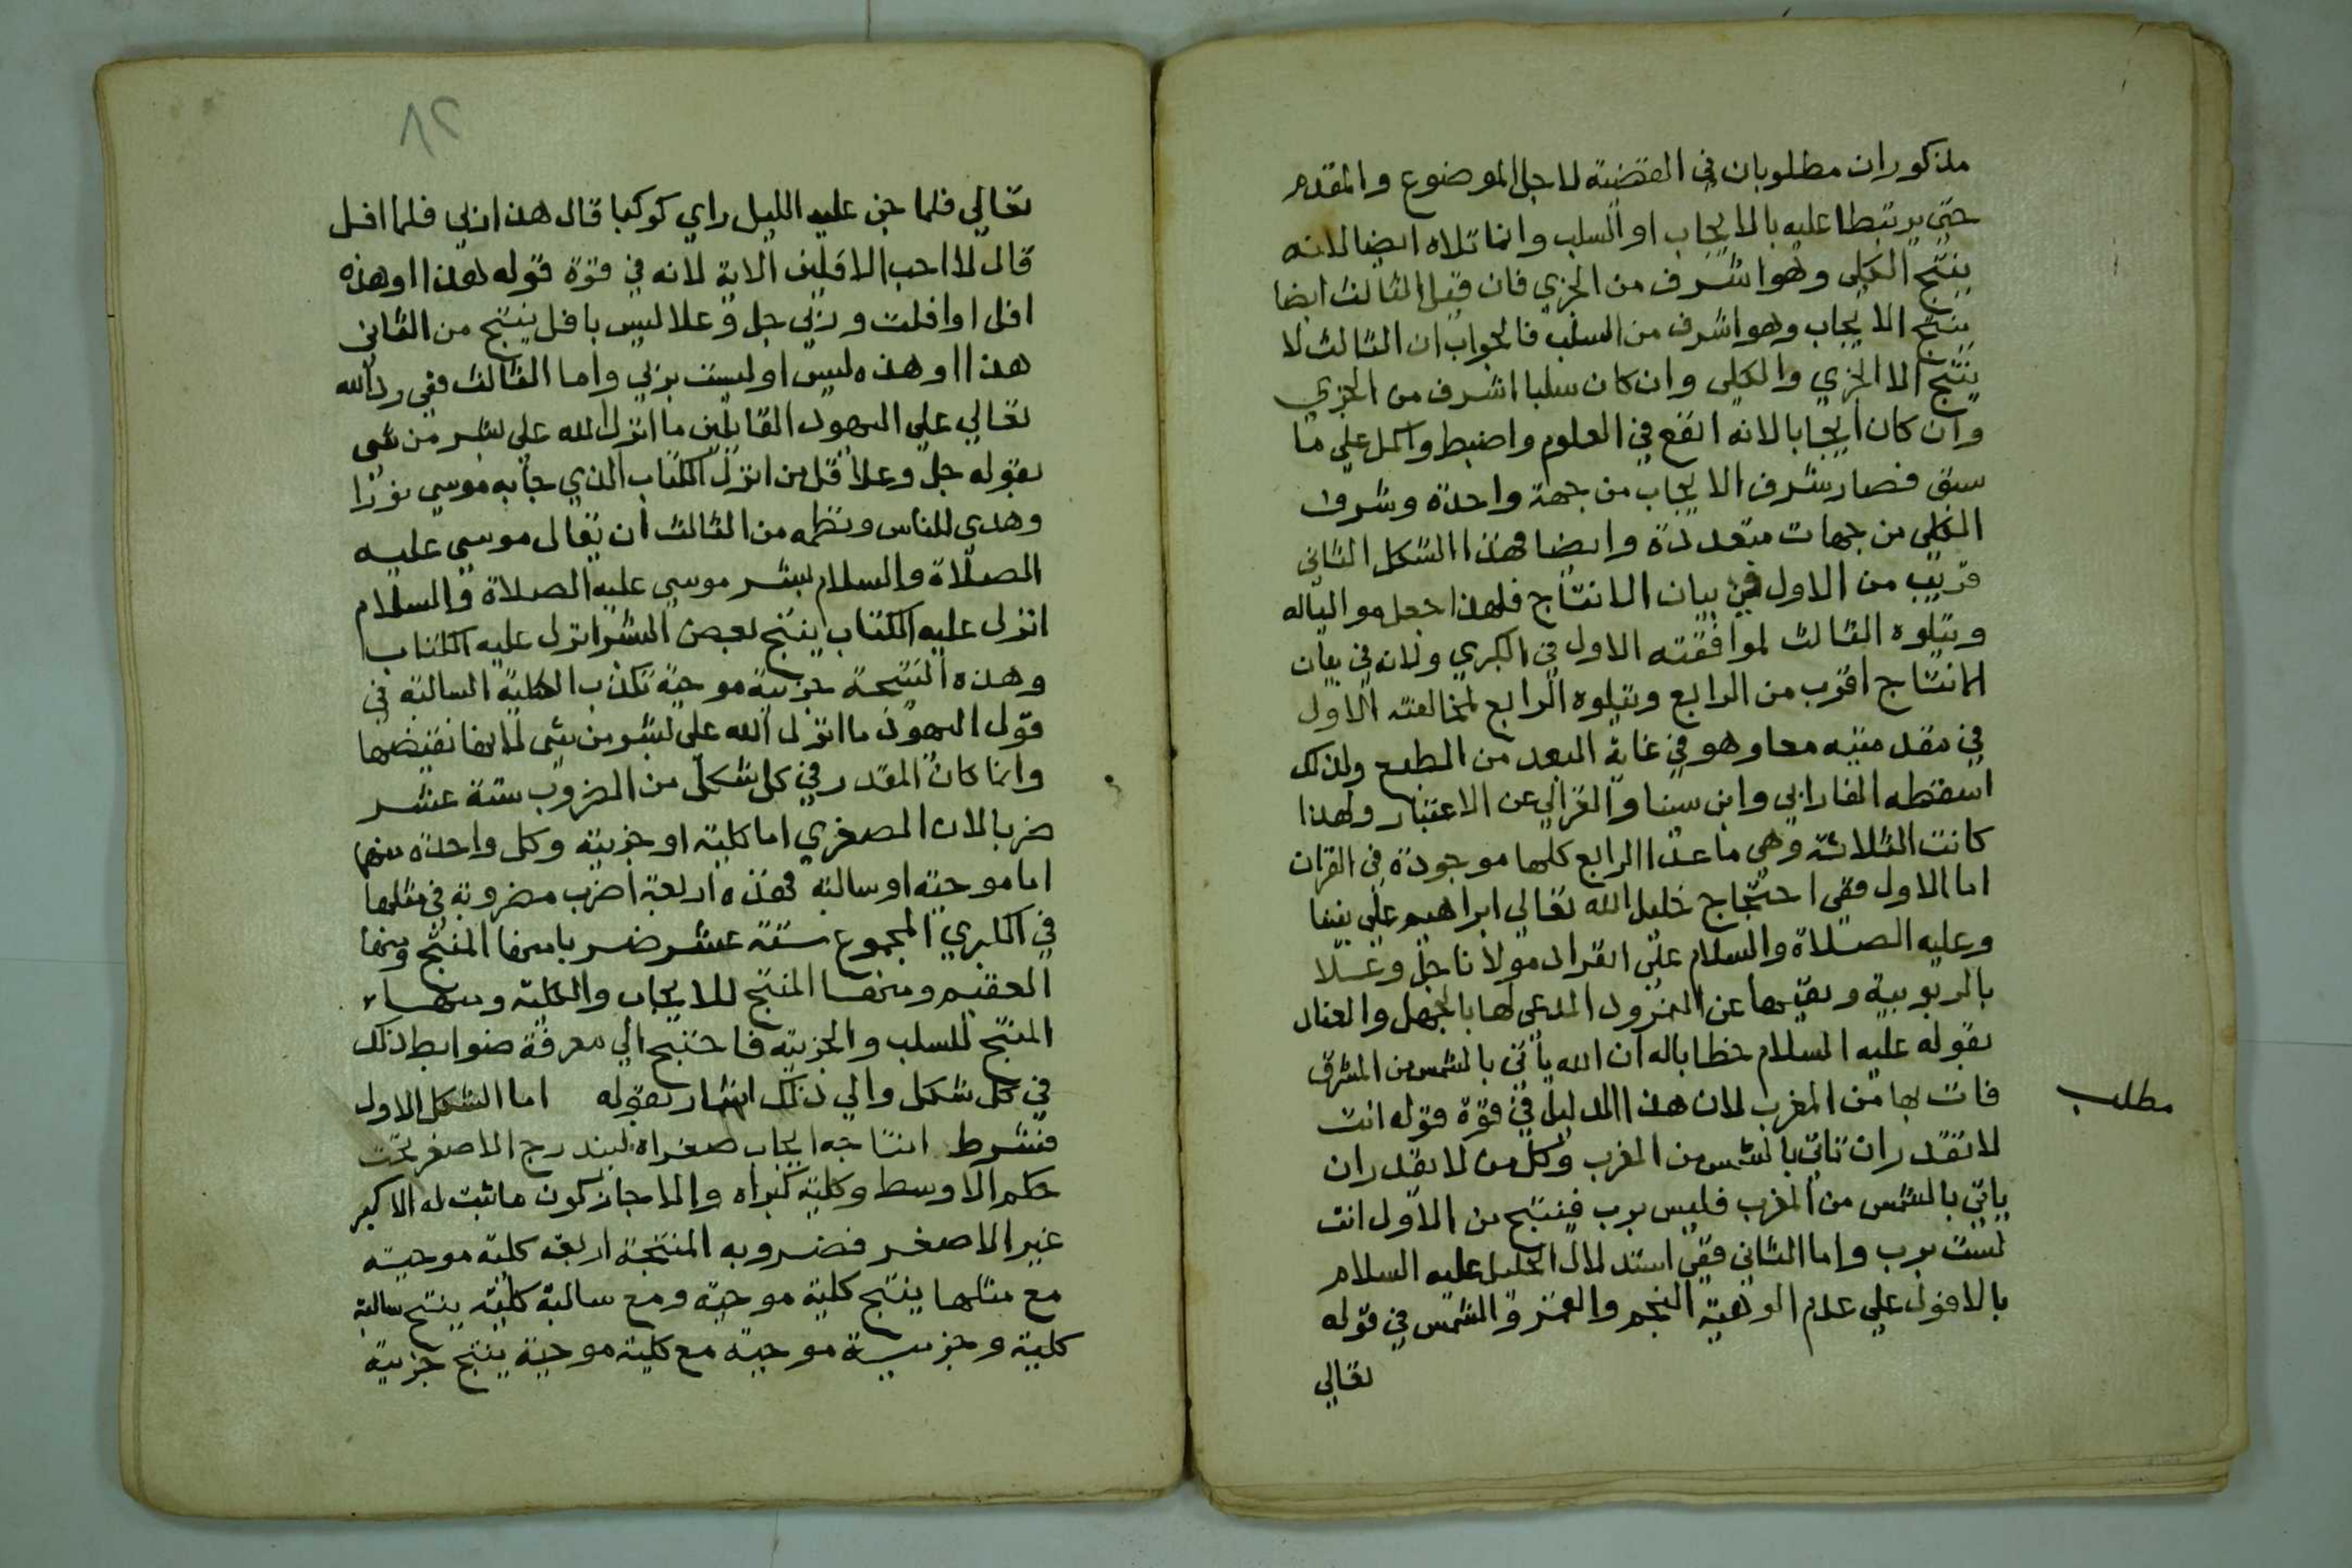 مذكوران مطلوبان في القضية لاجل الموضوع والمقدم
حتى يرتبطا عليه بالايجاب او السلب وانما تلاه ايضا لانه
ينتج الكلى وهو اشرف من الجزي فان قيل الثالث ايضا
ينتج الايجاب وهو اشرف من السلب فالجواب ان الثالث لا
ينتج الا الجزي والكلى وان كان سلبا اشرف من الجزي
وان كان ايجابا لانه انفع في العلوم واضبط واكمل علي ما
سبق فصار شرف الايجاب من جهة واحدة وشرف
الكلى من جهات متعددة وايضا فهذا الشكل الثاني
قريب من الاول في بيان الانتاج فلهذا جعل مواليا له
ويتلوه الثالث لموافقته الاول في الكبري ولانه في بيان
الانتاج اقرب من الرابع ويتلوه الرابع لمخالفته الاول
في مقدمتيه معا وهو في غاية البعد من الطبع ولذلك
اسقطه الفارابي وابن سينا والغزالي عن الاعتبار ولهذا
كانت الثلاثة وهي ماعدا الرابع كلها موجودة في القران
اما الاول ففى احتجاج خليل الله تعالي ابراهيم علي نبينا
وعليه الصلاة والسلام علي انفراد مولانا جل وعلا
بالربوبية ونفيها عن النمرود المدعى لها بالجهل والعناد
بقوله عليه السلام خطابا له ان الله يأتي بالشمس من المشرق
فات بها من المغرب لان هذا الدليل في قوة قوله انت
مطلب
لا تقدر ان تاتي بالشمس من المغرب وكل من لا يقدر ان
ياتي بالشمس من المغرب فليس برب فينتج من الاول انت
لست برب واما الثاني ففي استدلال الخليل عليه السلام
بالافول علي عدم الوهية النجم والقمر والشمس في قوله
تعالي
٨٢
تعالي فلما جن عليه الليل راي كوكبا قال هذا ربي فلما افل
قال لا احب الافلين الاية لانه في قوة قوله هذا او هذه
افل او افلت وربي جل وعلا ليس بافل ينتج من الثاني
هذا او هذه ليس او ليست بربي واما الثالث ففي رد الله
تعالي علي اليهود القايلين ما انزل الله علي بشر من شى
بقوله جل وعلا قل من انزل الكتاب الذي جا به موسي نورا
وهدى للناس ونظمه من الثالث ان يقال موسي عليه
الصلاة والسلام بشر موسي عليه الصلاة والسلام
انزل عليه الكتاب ينتج بعض البشر انزل عليه الكتاب
وهذه النتيجة جزيية موجبة تكذب الكلية السالبة في
قول اليهود ما انزل الله على بشر من شى لانها نقيضها
وانما كان المقدر في كل شكل من الضروب ستة عشر
ضربا لان الصغري اما كلية او جزيية وكل واحدة منهما
اما موجبة او سالبة فهذه اربعة اضرب مضروبة في مثلها
في الكبري المجموع ستة عشر ضربا منها المنتج ومنها
العقيم ومنها المنتج للايجاب والكلية ومنها
المنتج للسلب والجزيية فاحتيج الي معرفة ضوابط ذلك
في كل شكل والي ذلك اشار بقوله اما الشكل الاول
فشرط انتاجه ايجاب صغراه ليندرج الاصغر تحت
حكم الاوسط وكلية كبراه والا جاز كون ما ثبت له الاكبر
غير الاصغر فضروبه المنتجة اربعة كلية موجبة
مع مثلها ينتج كلية موجبة ومع سالبة كلية ينتج سالبة
كلية وجزيية موجبة مع كلية موجبة ينتج جزيية